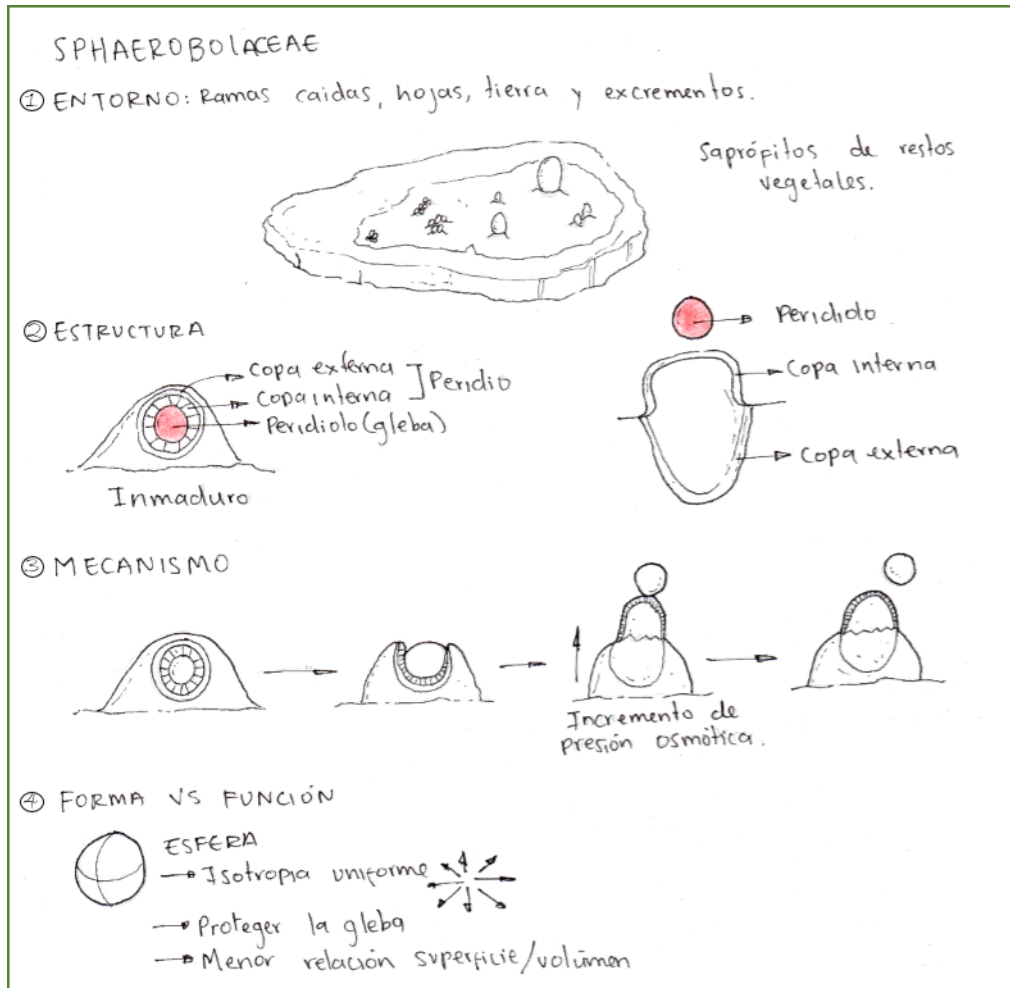 SPHAEROBOLACEAE
① ENTORNO: Ramas caidas, hojas, tierra y excrementos.
Saprófitos de restos
vegetales.
② ESTRUCTURA
Copa externa
Copa interna
Peridio
Peridiolo (gleba)
Inmaduro
Peridiolo
Copa interna
Copa externa
③ MECANISMO
Incremento de
presión osmótica.
④ FORMA VS FUNCIÓN
ESFERA
Isotropia uniforme
Proteger la gleba
Menor relación superficie/volúmen